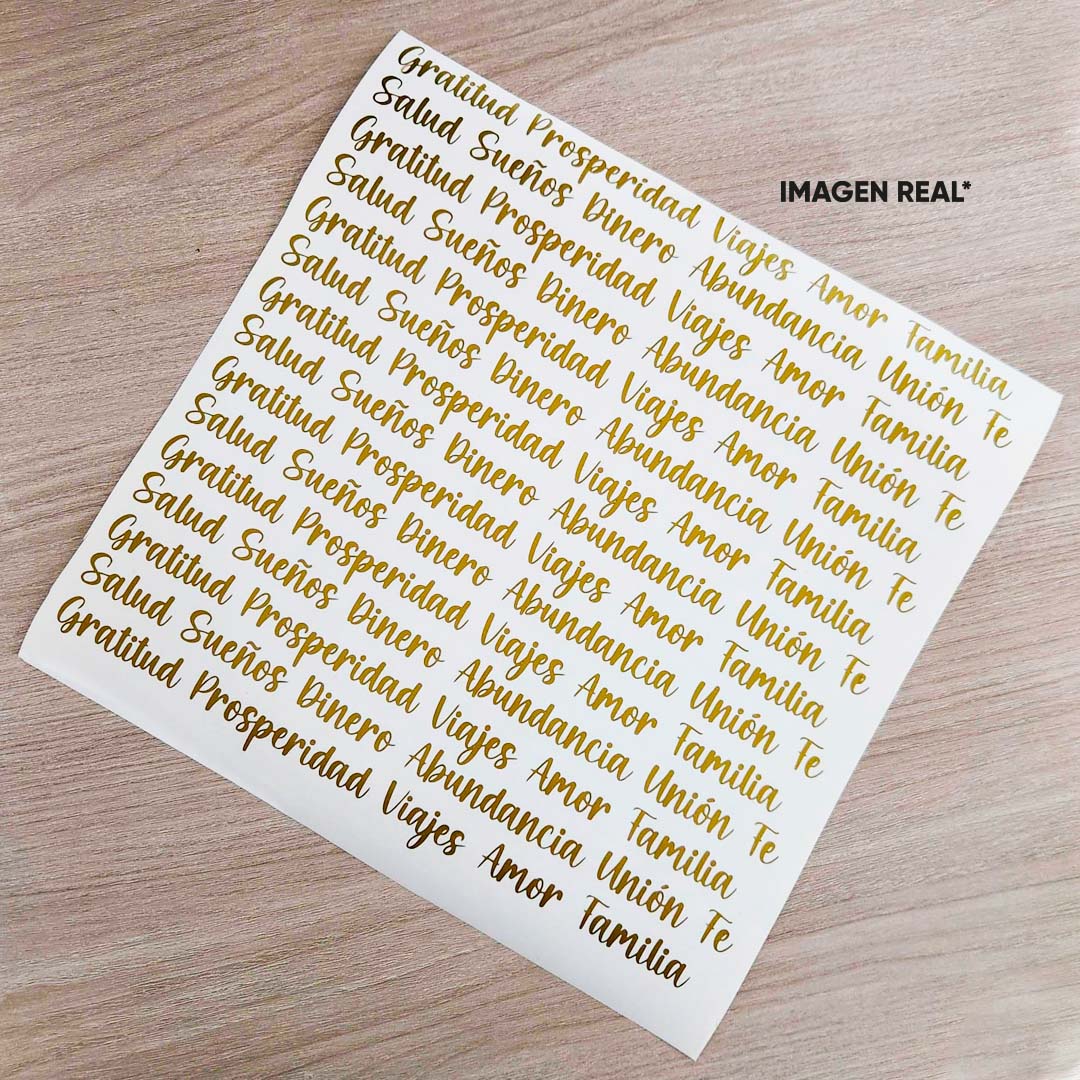 Gratitud Prosperidad Viajes Amor Familia
Salud Sueños Dinero Abundancia Unión Fe
Gratitud Prosperidad Viajes Amor Familia
Salud Sueños Dinero Abundancia Unión Fe
Gratitud Prosperidad Viajes Amor Familia
Salud Sueños Dinero Abundancia Unión Fe
Gratitud Prosperidad Viajes Amor Familia
Salud Sueños Dinero Abundancia Unión Fe
Gratitud Prosperidad Viajes Amor Familia
Salud Sueños Dinero Abundancia Unión Fe
Gratitud Prosperidad Viajes Amor Familia
Salud Sueños Dinero Abundancia Unión Fe
Gratitud Prosperidad Viajes Amor Familia
Salud Sueños Dinero Abundancia Unión Fe
Gratitud Prosperidad Viajes Amor Familia
IMAGEN REAL*